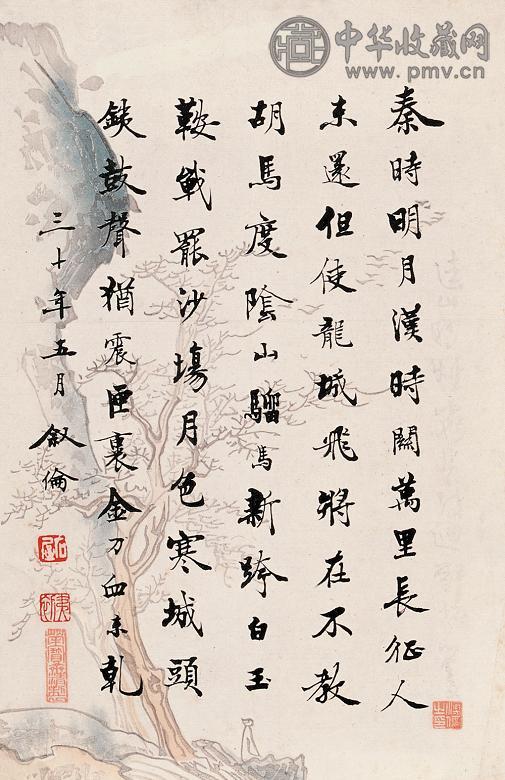 中华收藏网
www.pmv.cn
秦時明月漢時關萬里長征人
未還但使龍城飛將在不教
胡馬度陰山驑馬新跨白玉
鞍戰罷沙場月色寒城頭
鐵鼓聲猶震匣裏金刀血未乾
三十年五月 叙倫